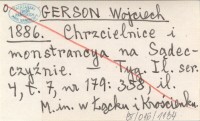 GERSON Wojciech
1886. Chrzcielnice i
monstrancya na Sądec-
czyźnie. = Tyg. Il. ser.
4, t. 7, nr 179: 358 il.
M. in. w Łącku i Krościenku.